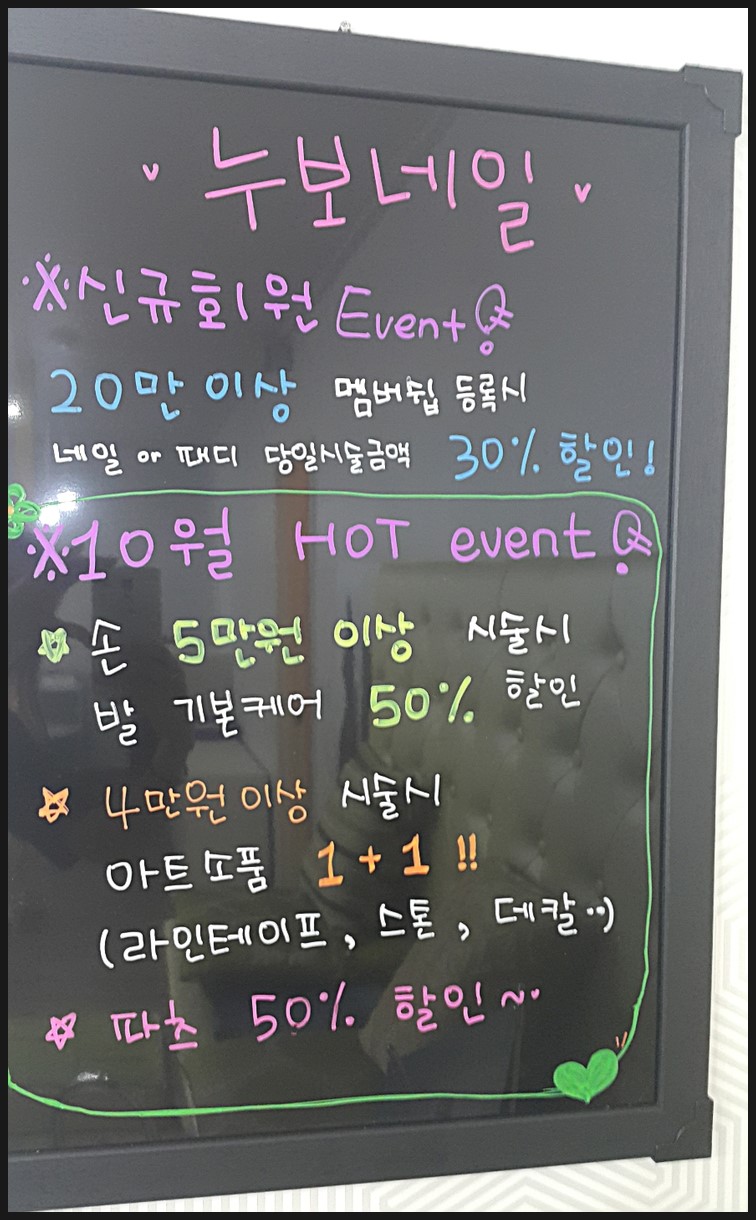 ♥ 누보네일 ♥
※신규회원 Event
20만 이상 멤버쉽 등록시
네일 or 패디 당일시술금액 30% 할인!
※10월 HOT event
☆ 손 5만원 이상 시술시
발 기본케어 50% 할인
☆ 4만원 이상 시술시
아트소품 1+1 !!
(라인테이프, 스톤, 데칼..)
☆ 파츠 50% 할인~